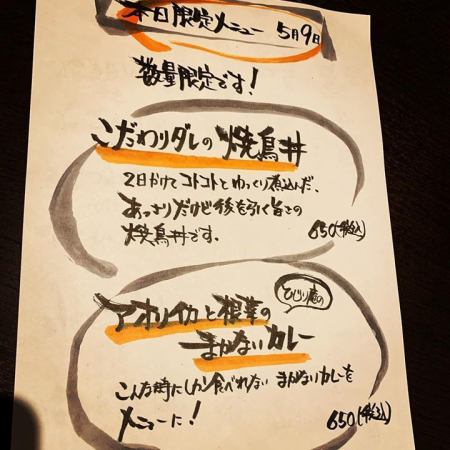 本日限定メニュー 5月9日
数量限定です!
こだわりダレの焼鳥丼
2日かけてコトコトとゆっくり煮込んだ、
あっさりだけど後を引く旨さの
焼鳥丼です。
650(税込)
ひじり庵の
アオリイカと根菜の
まかないカレー
こんな時にしか食べれない まかないカレーを
メニューに!
650(税込)